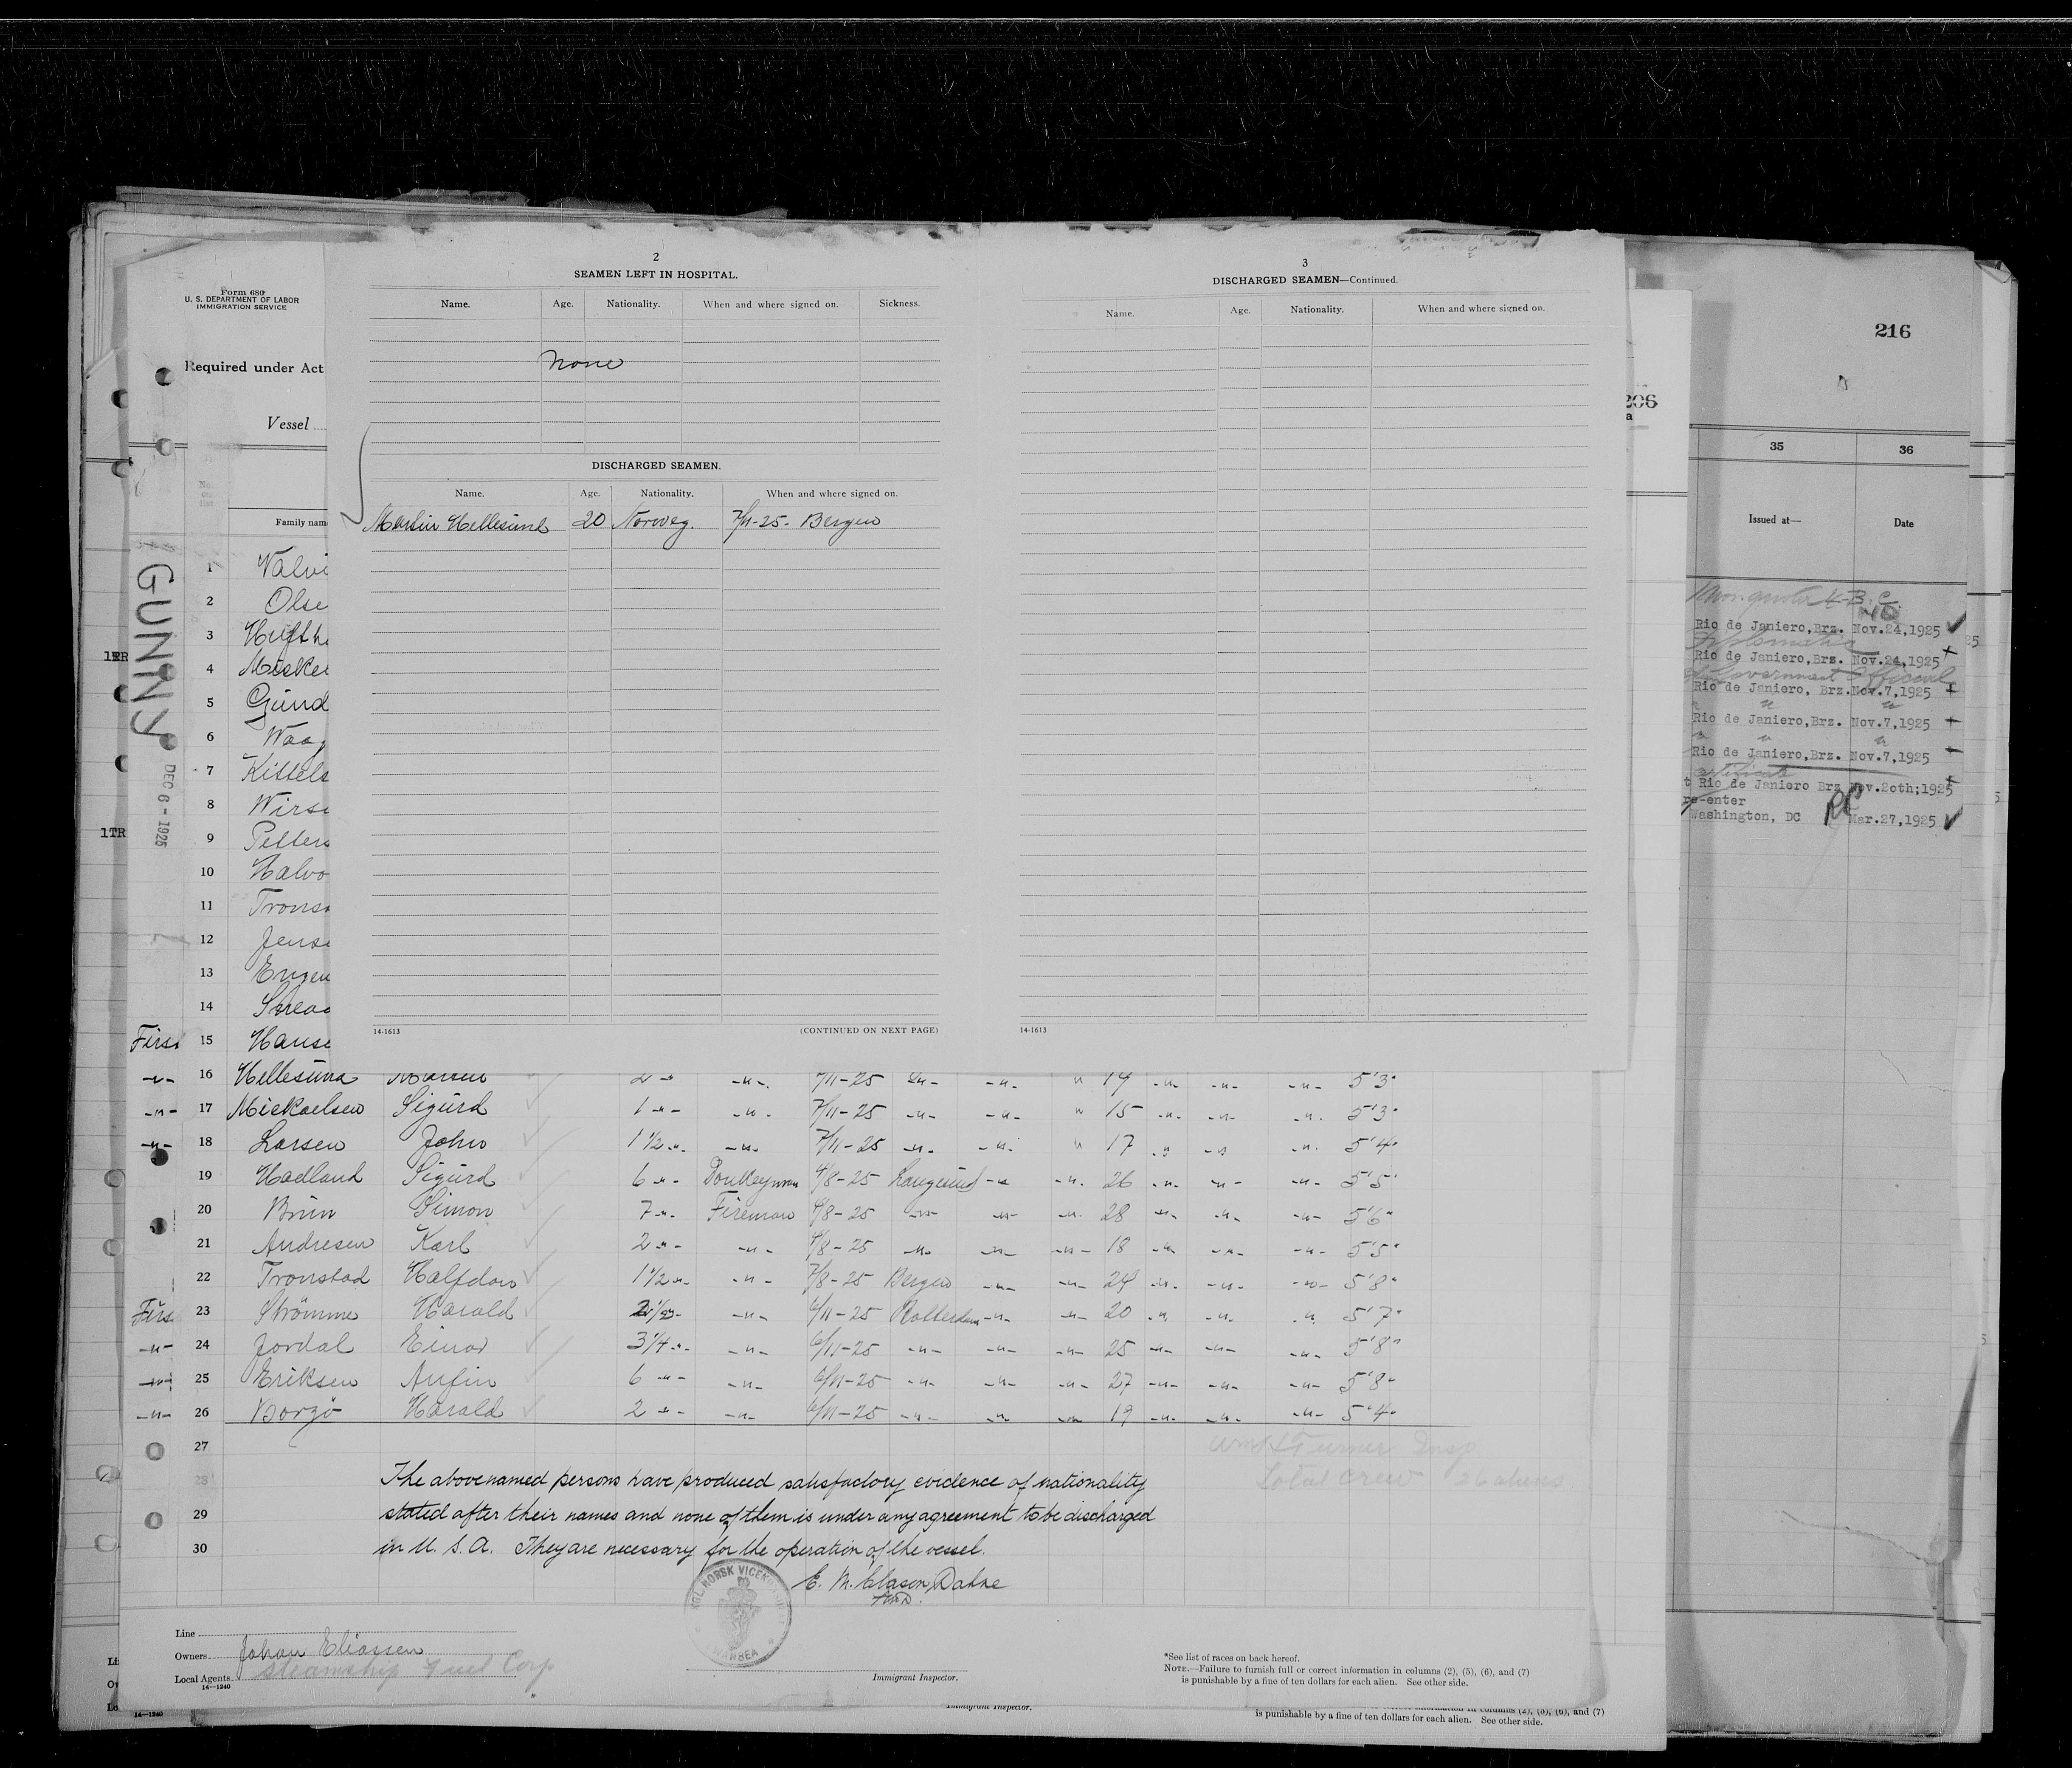 2
SEAMEN LEFT IN HOSPITAL.
Name. Age. Nationality. When and where signed on. Sickness.
None
DISCHARGED SEAMEN.
Name. Age. Nationality. When and where signed on.
Martin Hellesund 20 Norweg. 7/11-25- Bergen
14-1613 (CONTINUED ON NEXT PAGE)
3
DISCHARGED SEAMEN—Continued.
Name. Age. Nationality. When and where signed on.
14-1613
Form 680
U. S. DEPARTMENT OF LABOR
IMMIGRATION SERVICE
Required under Act
Vessel
Family name
GUNNY
DEC 6 - 1925
1TR
1
2 Olse
3
4
5 Gund
6
7 Kittels
8
9 Petters
10 Halvo
11
12 Jense
13
14
First 15 Hanse
-"- 16 Hellesund Martin 2 -"- -"- 7/11-25 -"- -"- " 19 -"- -"- -"- 5'3"
-"- 17 Mickaelsen Sigurd 1 -"- -"- 7/11-25 -"- -"- " 15 -"- -"- -"- 5'3"
-"- 18 Larsen John 1 1/2 -"- -"- 7/11-25 -"- -"- " 17 -"- -"- -"- 5'4"
19 Hadland Sigurd 6 -"- Donkeyman 4/8-25 Langesund -"- -"- 26 -"- -"- -"- 5'5"
20 Brun Simon 7 -"- Fireman 4/8-25 -"- -"- -"- 28 -"- -"- -"- 5'6"
21 Andresen Karl 2 -"- -"- 4/8-25 -"- -"- -"- 18 -"- -"- -"- 5'5"
22 Tronstad Halfdan 1 1/2 -"- -"- 7/8-25 Bergen -"- -"- 24 -"- -"- -"- 5'8"
Firs 23 Strömme Harald 2 1/2 -"- -"- 6/11-25 Rotterdam -"- -"- 20 -"- -"- -"- 5'7"
-"- 24 Jordal Einar 3 1/4 -"- -"- 6/11-25 -"- -"- -"- 25 -"- -"- -"- 5'8"
-"- 25 Eriksen Anfin 6 -"- -"- 6/11-25 -"- -"- -"- 27 -"- -"- -"- 5'8"
-"- 26 Borgö Harald 2 -"- -"- 6/11-25 -"- -"- -"- 19 -"- -"- -"- 5'4"
27 Turner Insp
28 Total crew 26 aliens
The abovenamed persons have produced satisfactory evidence of nationality
29 stated after their names and none of them is under any agreement to be discharged
30 in U. S. A. They are necessary for the operation of the vessel.
E. M. Clason Dahne
KGL. NORSK VICEKONSULAT
SWANSEA
Line
Owners Johan Eliassen
Local Agents Steamship Fuel Corp
14—1240
Immigrant Inspector.
*See list of races on back hereof.
NOTE.—Failure to furnish full or correct information in columns (2), (5), (6), and (7)
is punishable by a fine of ten dollars for each alien. See other side.
14—1240
Immigrant Inspector.
is punishable by a fine of ten dollars for each alien. See other side.
206
216
35 36
Issued at— Date
Rio de Janiero,Brz. Nov.24,1925
Diplomatic
Rio de Janiero,Brz. Nov.24,1925
Government Official
Rio de Janiero, Brz.Nov.7,1925
Rio de Janiero,Brz. Nov.7,1925
Rio de Janiero,Brz. Nov.7,1925
Rio de Janiero Brz Nov.2oth;1925
re-enter
Washington, DC Mar.27,1925